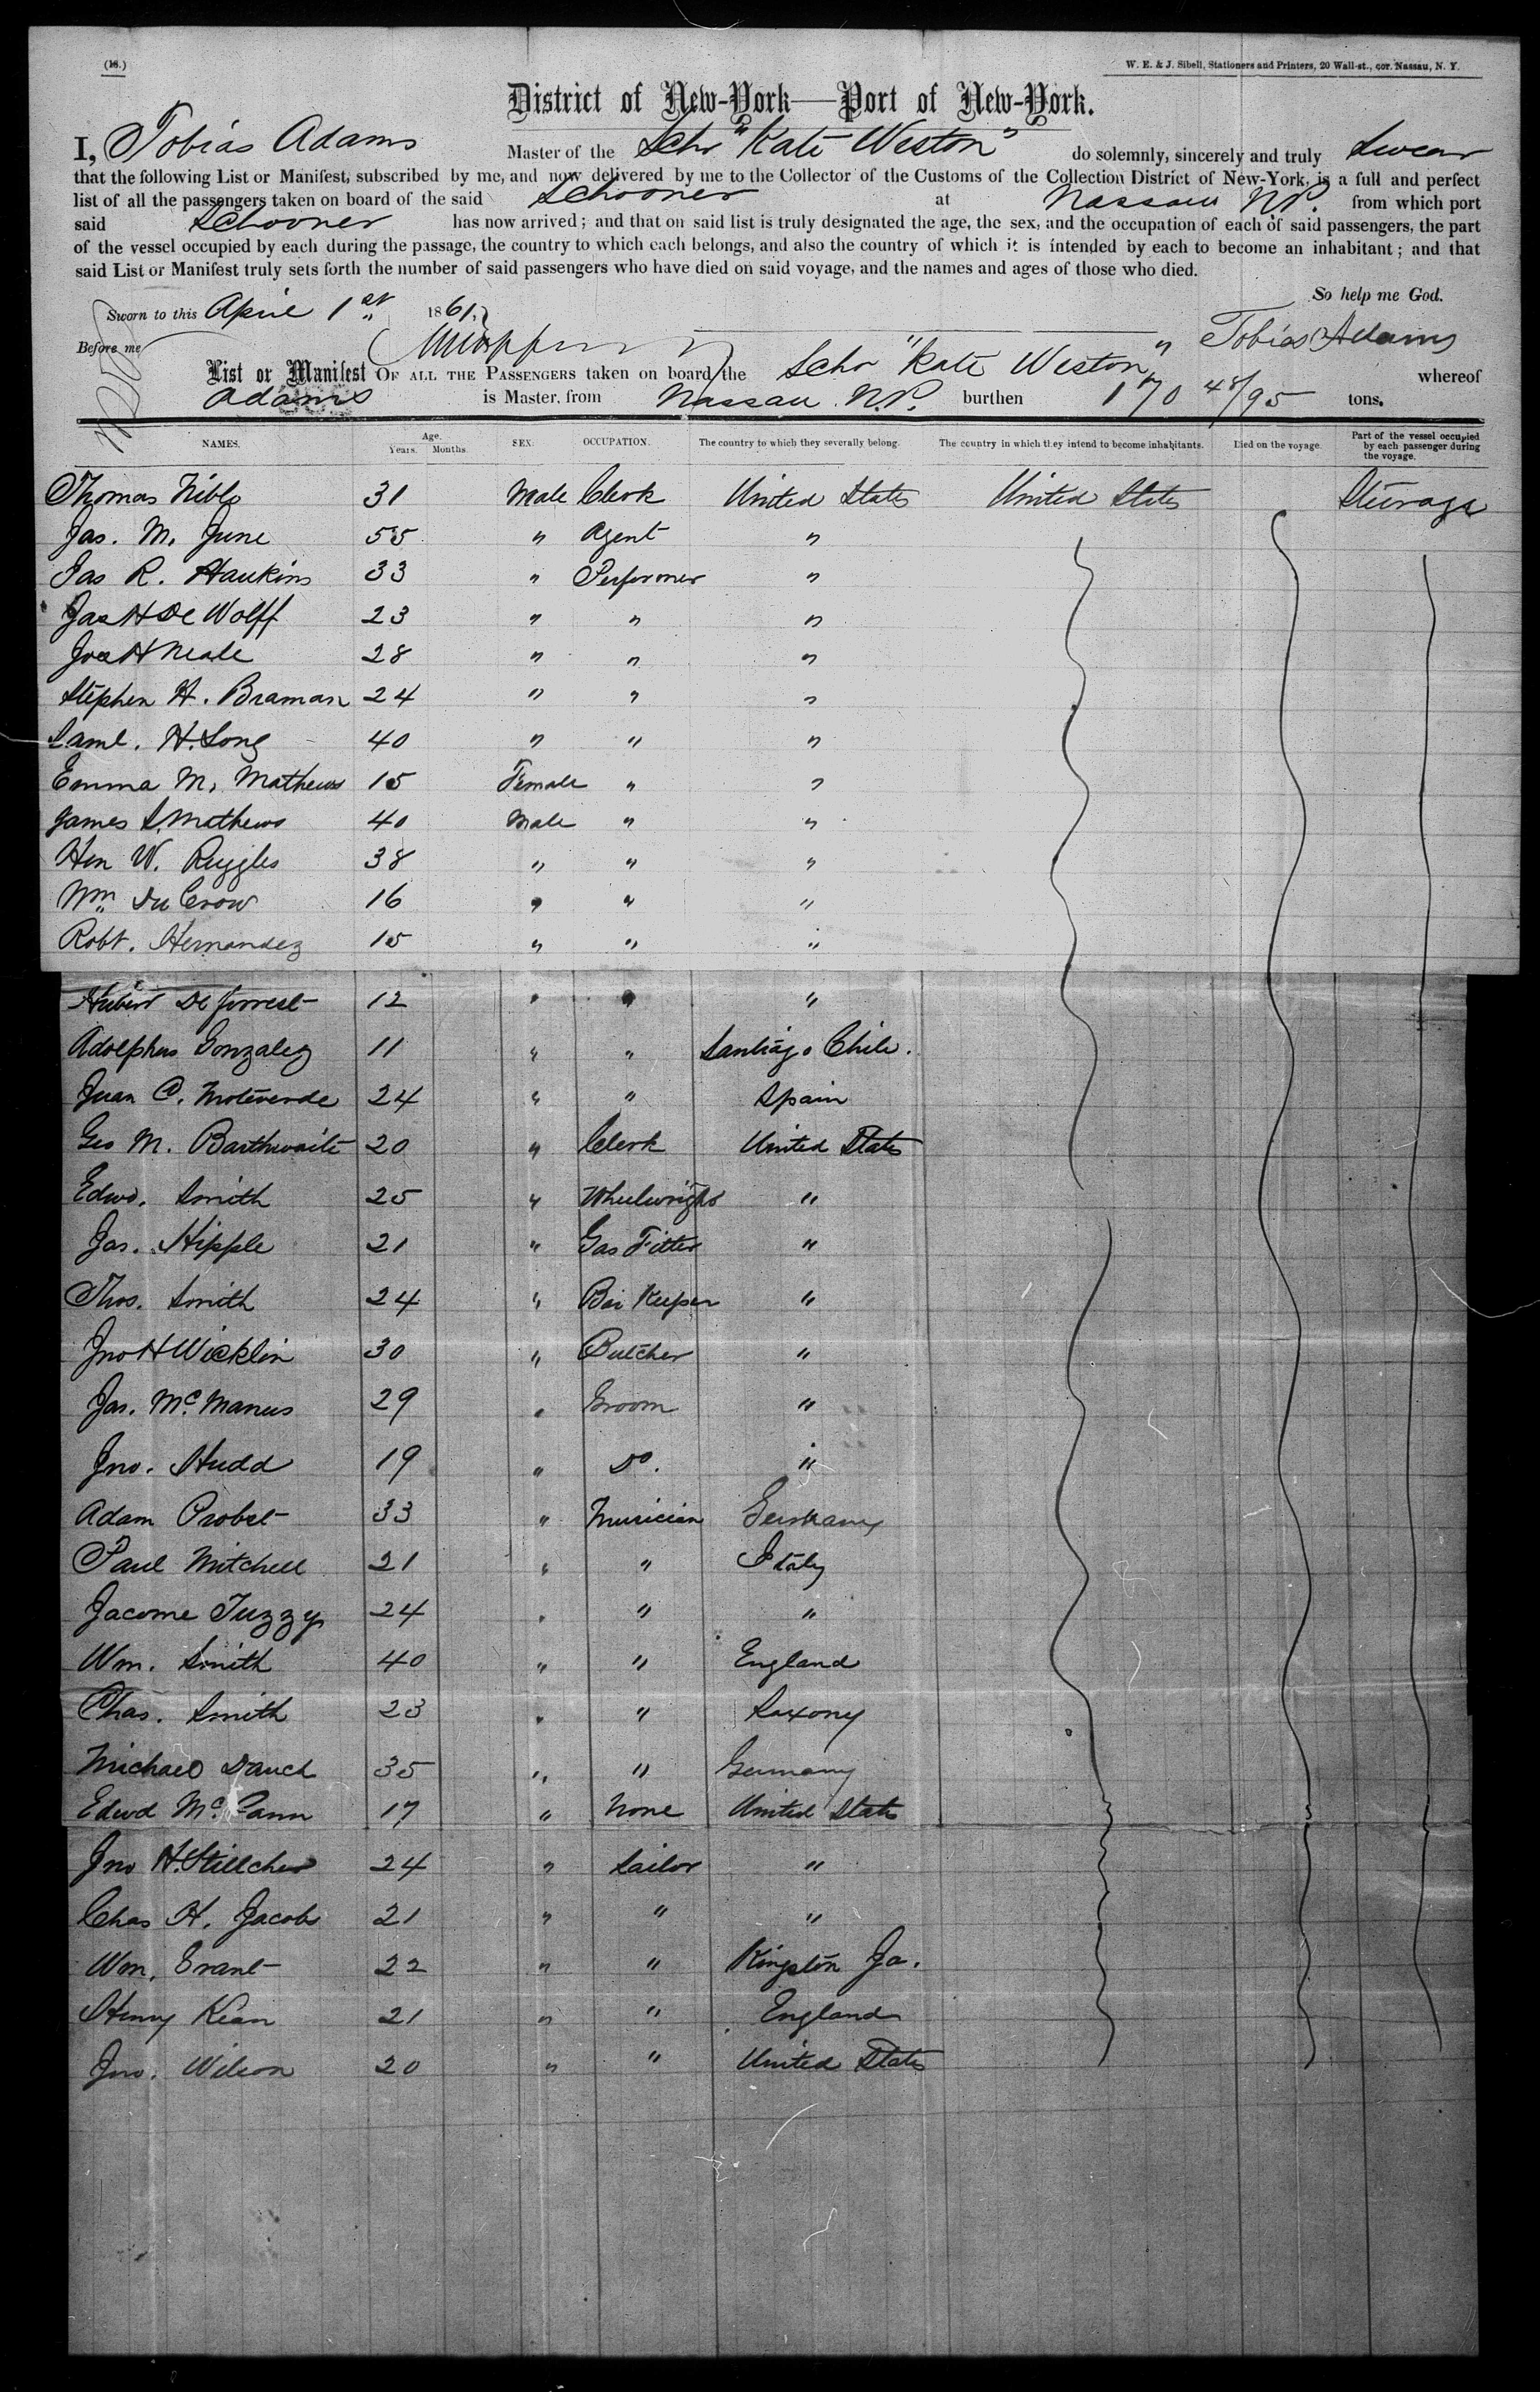 (18.)
W. E. & J. Sibell, Stationers and Printers, 20 Wall-st., cor. Nassau, N. Y.
District of New-York—Port of New-York.
I, Tobias Adams Master of the Schr "Kate Weston" do solemnly, sincerely and truly swear
that the following List or Manifest, subscribed by me, and now delivered by me to the Collector of the Customs of the Collection District of New-York, is a full and perfect
list of all the passengers taken on board of the said Schooner at Nassau N.P. from which port
said Schooner has now arrived; and that on said list is truly designated the age, the sex, and the occupation of each of said passengers, the part
of the vessel occupied by each during the passage, the country to which each belongs, and also the country of which it is intended by each to become an inhabitant; and that
said List or Manifest truly sets forth the number of said passengers who have died on said voyage, and the names and ages of those who died.
So help me God.
Sworn to this April 1st 1861,
Before me Tobias Adams
List or Manifest OF ALL THE PASSENGERS taken on board the Schr "Kate Weston" whereof
Adams is Master, from Nassau N.P. burthen 170 48/95 tons.
NAMES. Age. Years. Months. SEX. OCCUPATION. The country to which they severally belong. The country in which they intend to become inhabitants. Died on the voyage. Part of the vessel occupied by each passenger during the voyage.
Thomas Niblo 31 Male Clerk United States United States Steerage
Jas. M. June 55 " Agent "
Jas R. Hankins 33 " Performer "
Jas H De Wolff 23 " " "
Jos H Neale 28 " " "
Stephen H. Braman 24 " " "
Saml. H. Long 40 " " "
Emma M. Mathews 15 Female " "
James S. Mathews 40 Male " "
Hen W. Ruggles 38 " " "
Wm. Du Crow 16 " " "
Robt. Hernandez 15 " " "
Hubert De forrest 12 " " "
Adolphus Gonzalez 11 " " Santiago Chile.
Juan C. Moteverde 24 " " Spain
Geo M. Barthwaite 20 " Clerk United States
Edwd. Smith 25 " Wheelwright "
Jas. Hipple 21 " Gas Fitter "
Thos. Smith 24 " Bar Keeper "
Jno H Wicklin 30 " Butcher "
Jas. McManus 29 " Groom "
Jno. Hudd 19 " Do. "
Adam Probst 33 " Musician Germany
Paul Mitchell 21 " " Italy
Jacome Tuzzy 24 " " "
Wm. Smith 40 " " England
Chas. Smith 23 " " Saxony
Michael Dauch 35 " " Germany
Edwd McCann 17 " None United States
Jno H. 24 " Sailor "
Chas H. Jacobs 21 " " "
Wm. Grant 22 " " Kingston Ja.
Henry Kean 21 " " England
Jno. Wilson 20 " " United States